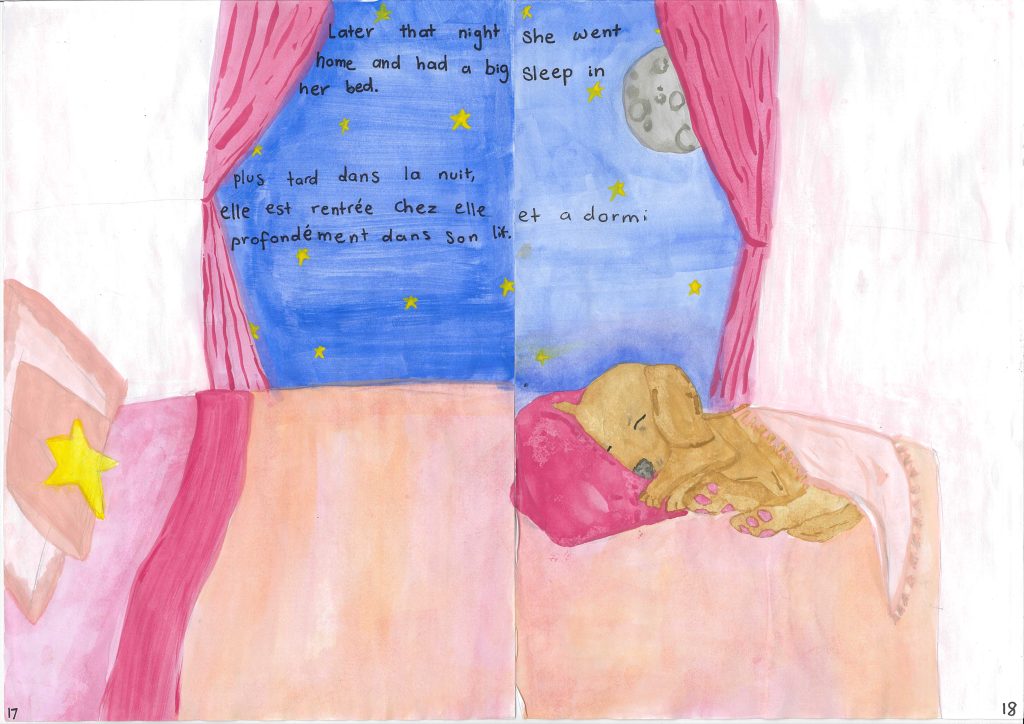 Later that night she went
home and had a big sleep in
her bed.
plus tard dans la nuit,
elle est rentrée chez elle et a dormi
profondément dans son lit.
17
18